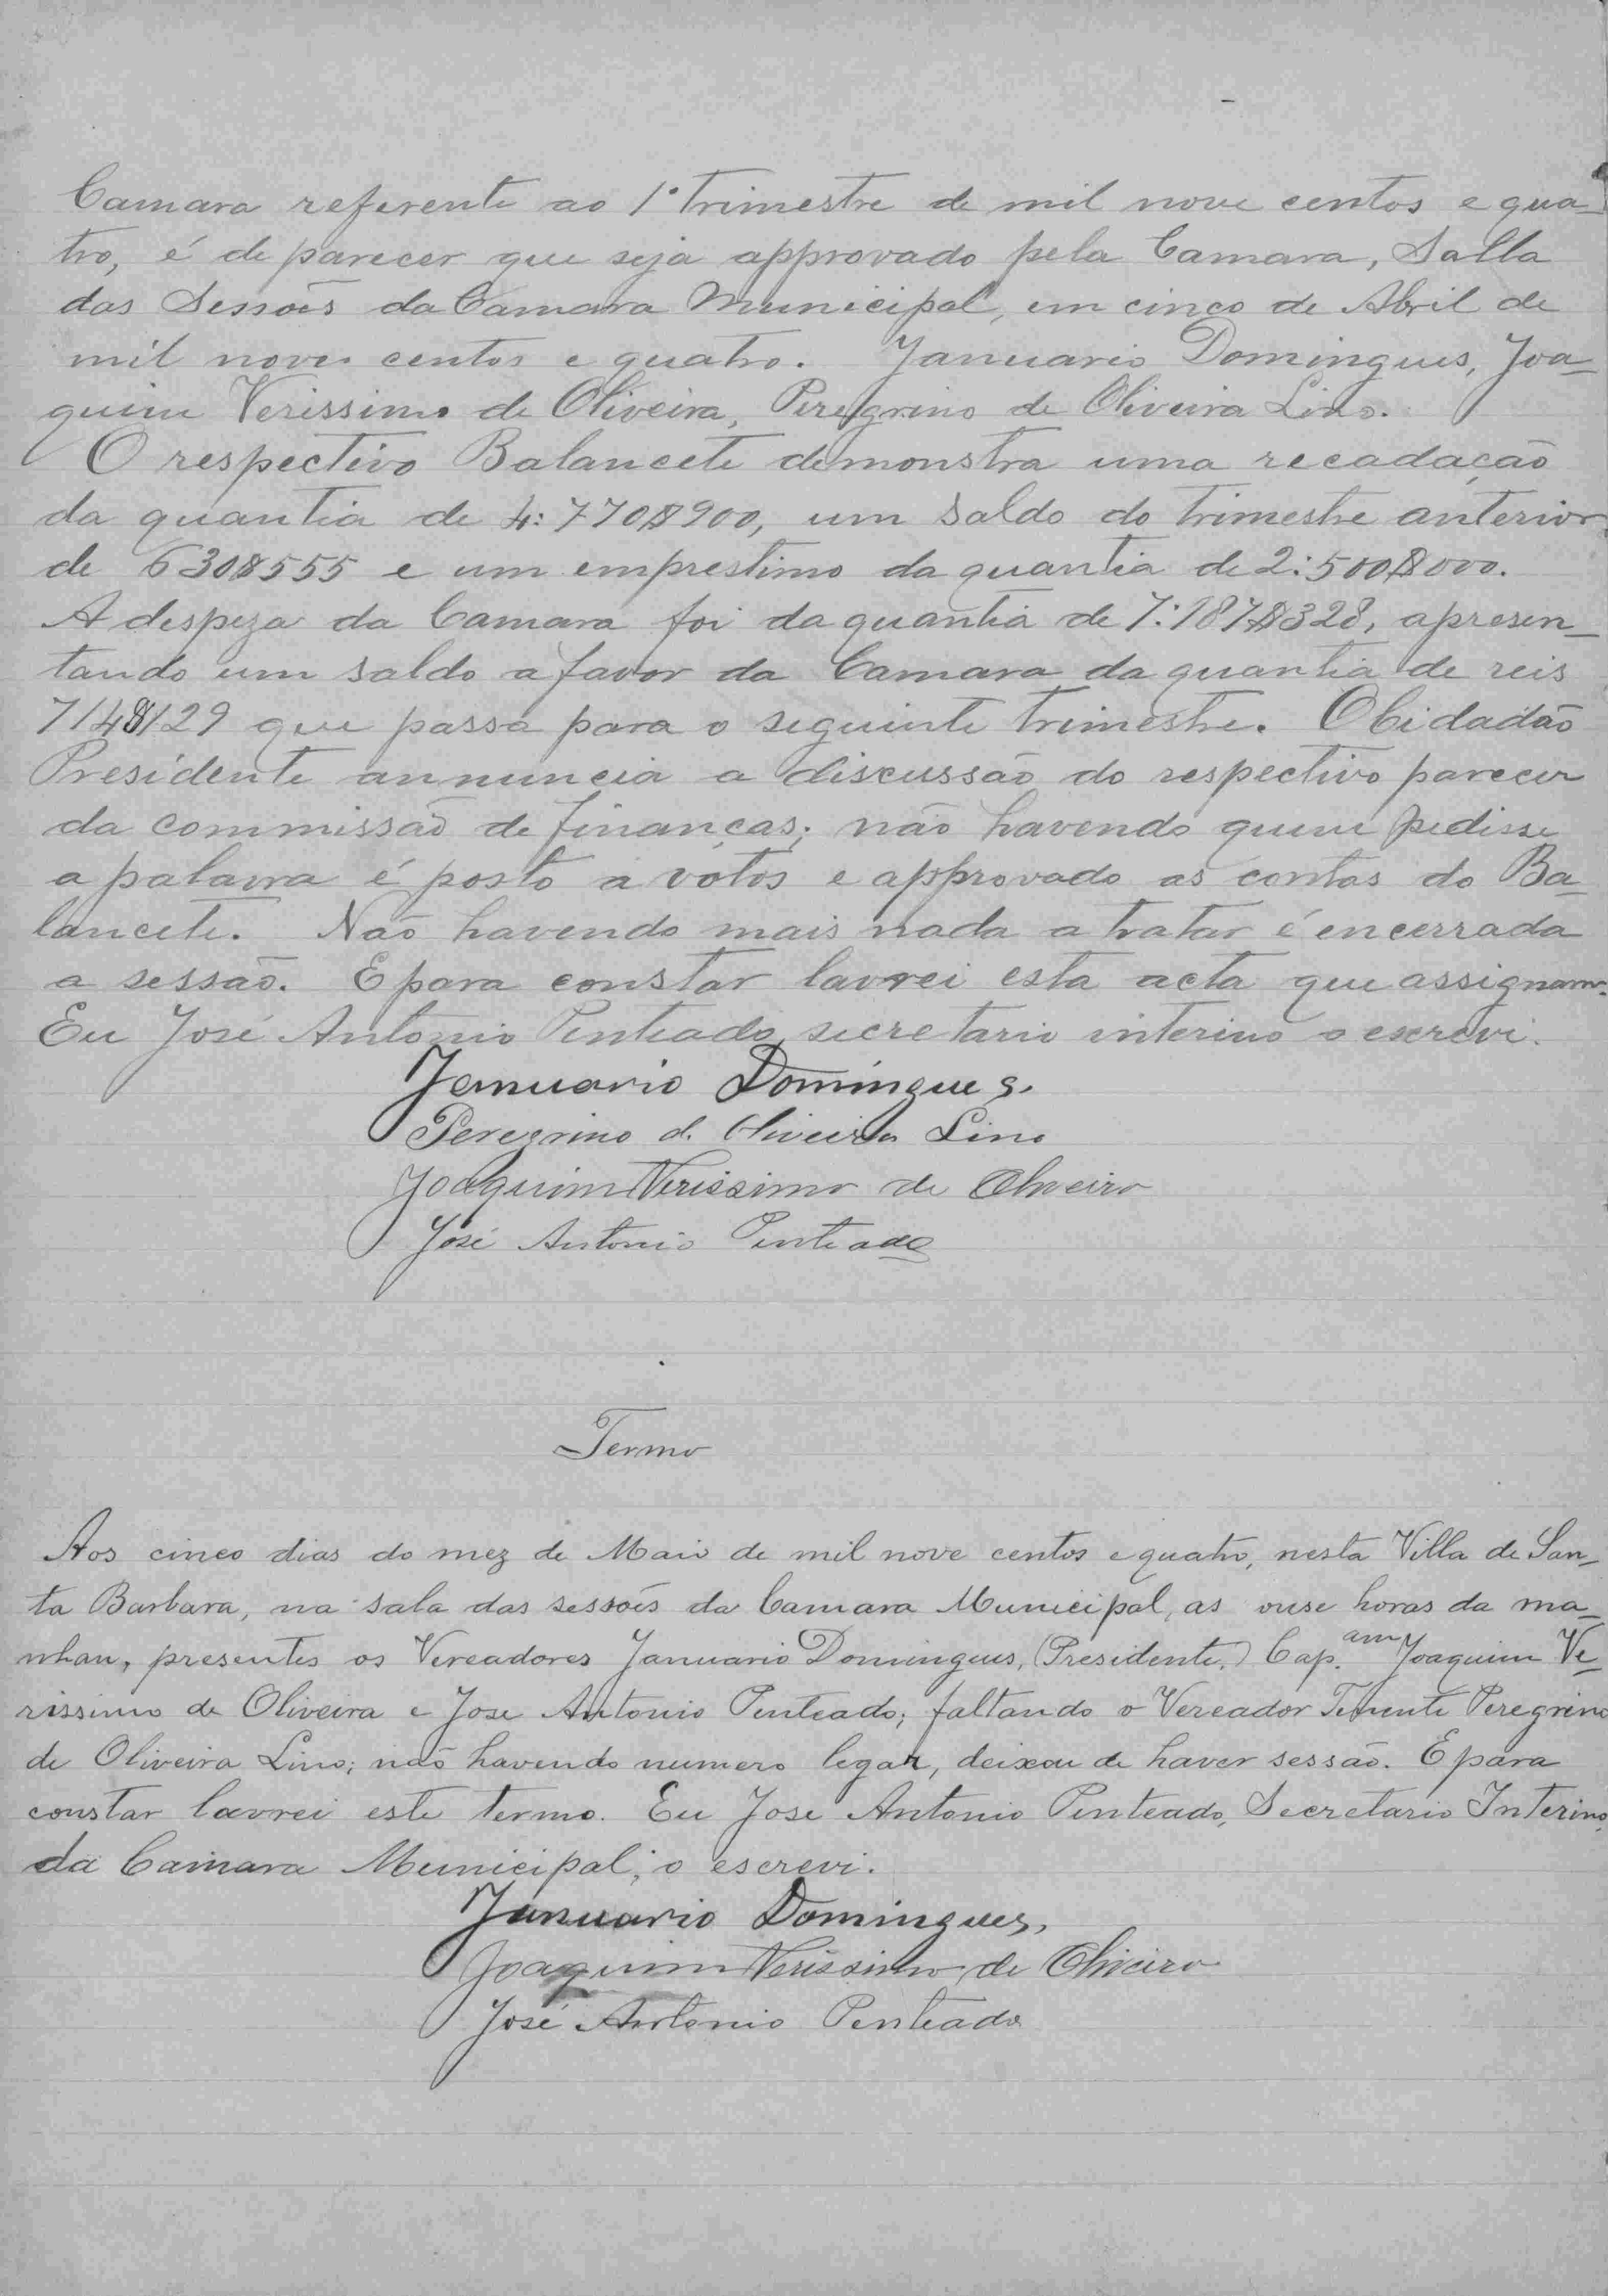 Camara referente ao 1º trimestre de mil nove centos e qua-
tro, é de parecer que seja approvado pela Camara, Salla
das Sessões da Camara Municipal, em cinco de Abril de
mil nove centos e quatro. Januario Domingues, Joa-
quim Verissimo de Oliveira, Peregrino de Oliveira Lino.
O respectivo Balancete demonstra uma recadação
da quantia de 4:770$900, um saldo do trimestre anterior
de 630$555 e um emprestimo da quantia de 2:500$000.
A despeza da Camara foi da quantia de 7:187$328, apresen-
tando um saldo a favor da Camara da quantia de reis
714$129 que passa para o seguinte trimestre. O Cidadão
Presidente annuncia a discussão do respectivo parecer
da commissão de finanças; não havendo quem pedisse
a palavra é posto a votos e approvado as contas do Ba-
lancete. Não havendo mais nada a tratar é encerrada
a sessão. E para constar lavrei esta acta que assignam.
Eu José Antonio Penteado, secretario interino o escrevi.
Januario Domingues.
Peregrino d. Oliveira Lino
Joaquim Verissimo de Oliveira
José Antonio Penteado
Termo
Aos cinco dias do mez de Maio de mil nove centos e quatro, nesta Villa de San-
ta Barbara, na sala das sessões da Camara Municipal, as onse horas da ma-
nhan, presentes os Vereadores Januario Domingues, (Presidente,) Cap.am Joaquim Ve-
rissimo de Oliveira e Jose Antonio Penteado; faltando o Vereador Tenente Peregrino
de Oliveira Lino; não havendo numero legar, deixou de haver sessão. E para
constar lavrei este termo. Eu Jose Antonio Penteado, Secretario Interino,
da Camara Municipal; o escrevi.
Januario Domingues,
Joaquim Verissimo de Oliveira
José Antonio Penteado